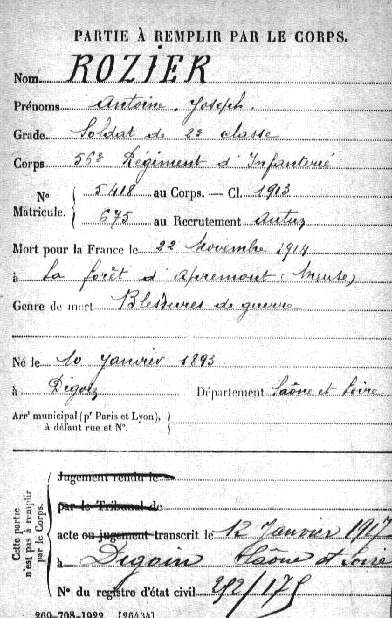 PARTIE À REMPLIR PAR LE CORPS.
Nom ROZIER
Prénoms Antoine Joseph.
Grade Soldat de 2e classe
Corps 56e Régiment d'Infanterie
No 5418 au Corps. — Cl. 1913
Matricule. 675 au Recrutement Autun
Mort pour la France le 22 Novembre 1914
à La forêt d'Apremont (Meuse)
Genre de mort Blessures de guerre
Né le 10 Janvier 1893
à Digoin Département Saône et Loire
Arrt municipal (pr Paris et Lyon),
à défaut rue et No.
Cette partie
n'est pas à remplir
par le Corps.
Jugement rendu le
par le Tribunal de
acte ou jugement transcrit le 12 Janvier 1917
à Digoin Saône et Loire
No du registre d'état civil 252/175
260-708-1922. [26434]